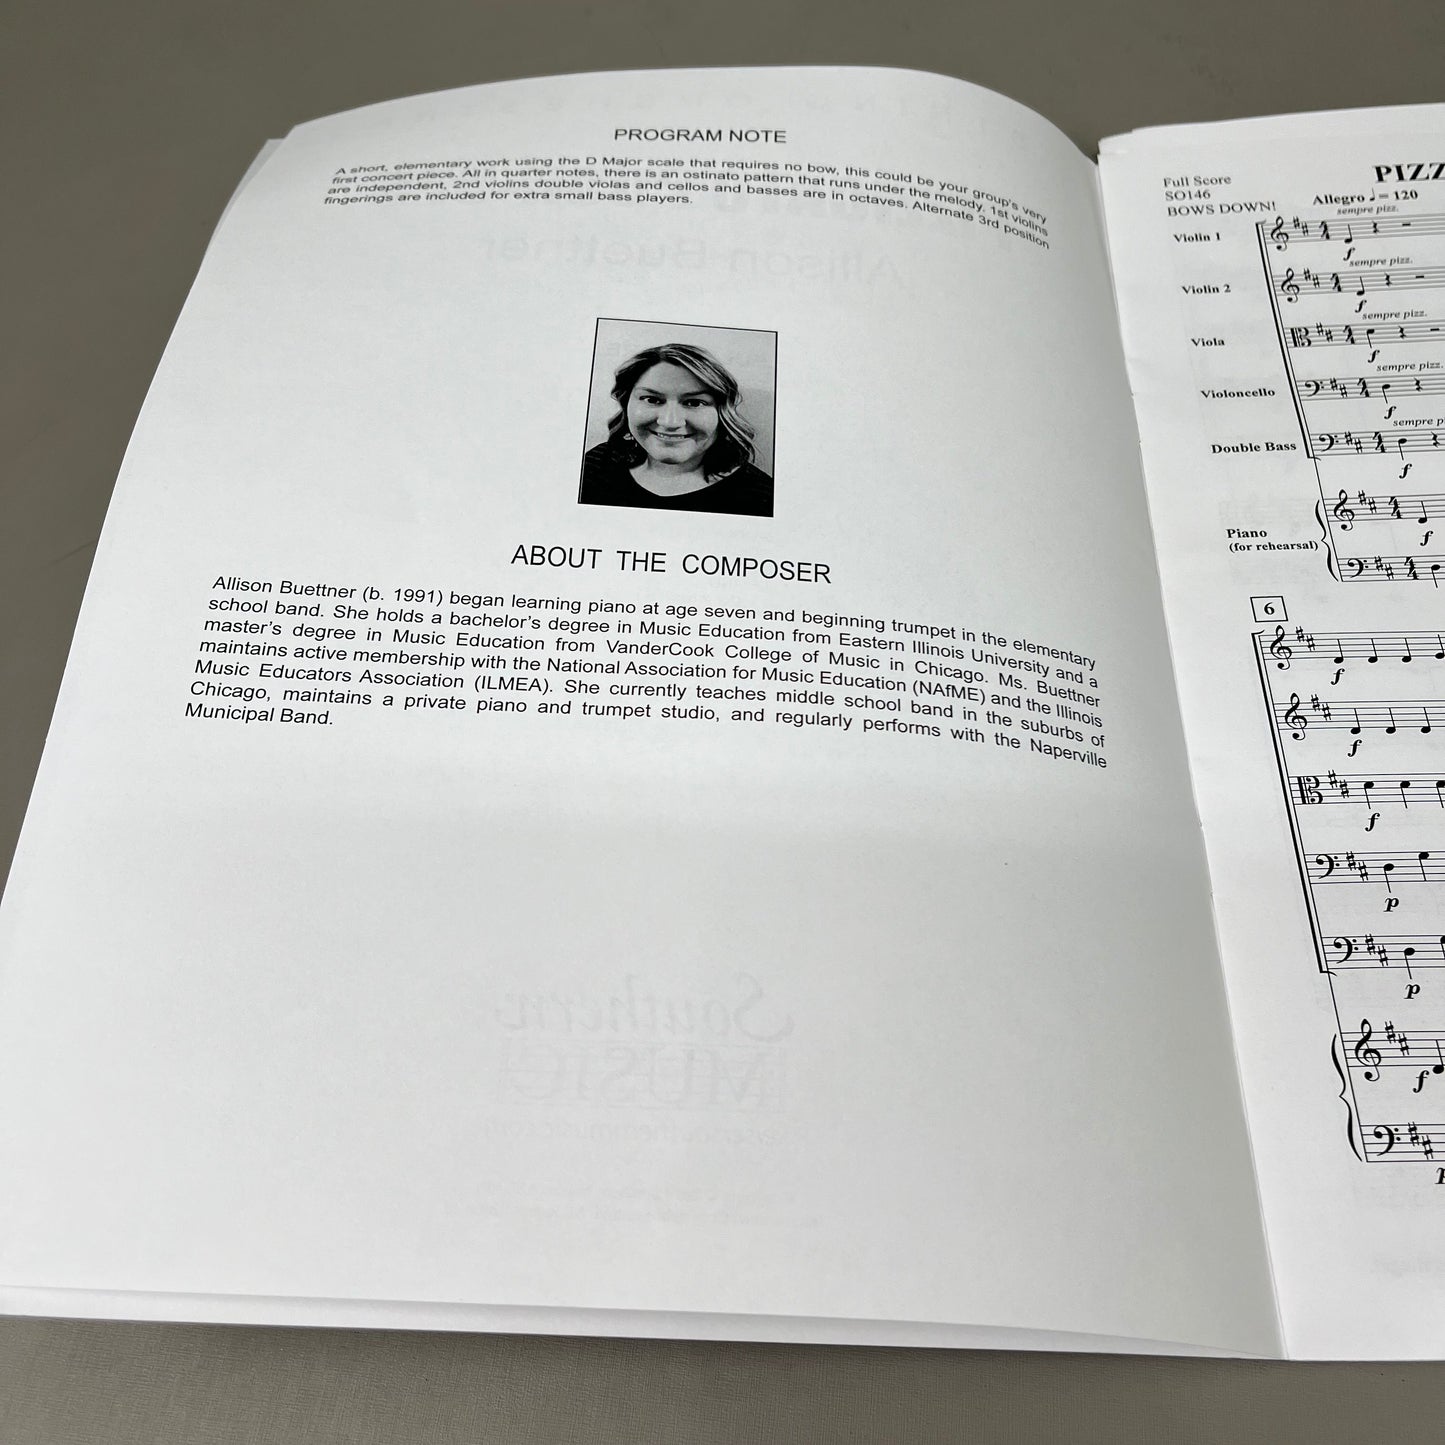 PROGRAM NOTE
A short, elementary work using the D Major scale that requires no bow, this could be your group's very
first concert piece. All in quarter notes, there is an ostinato pattern that runs under the melody. 1st violins
are independent, 2nd violins double violas and cellos and basses are in octaves. Alternate 3rd position
fingerings are included for extra small bass players.
ABOUT THE COMPOSER
Allison Buettner (b. 1991) began learning piano at age seven and beginning trumpet in the elementary
school band. She holds a bachelor's degree in Music Education from Eastern Illinois University and a
master's degree in Music Education from VanderCook College of Music in Chicago. Ms. Buettner
maintains active membership with the National Association for Music Education (NAfME) and the Illinois
Music Educators Association (ILMEA). She currently teaches middle school band in the suburbs of
Chicago, maintains a private piano and trumpet studio, and regularly performs with the Naperville
Municipal Band.
PIZZ
Full Score
SO146
BOWS DOWN!
Allegro ♩ = 120
sempre pizz.
Violin 1
f
sempre pizz.
Violin 2
f
sempre pizz.
Viola
f
sempre pizz.
Violoncello
f
sempre p
Double Bass
f
Piano
(for rehearsal)
f
6
f
f
f
p
p
f
p